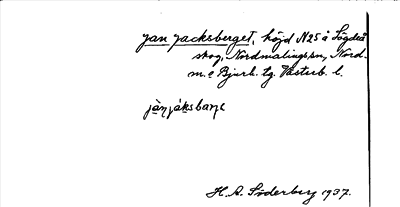 Jan Jacksberget, höjd N25 å Lögdeå
skog, Nordmalings sn, Nord-
m. o Bjurh. tg. Västerb. l.
jànjáksbarɟe
H. A. Söderberg 1937.